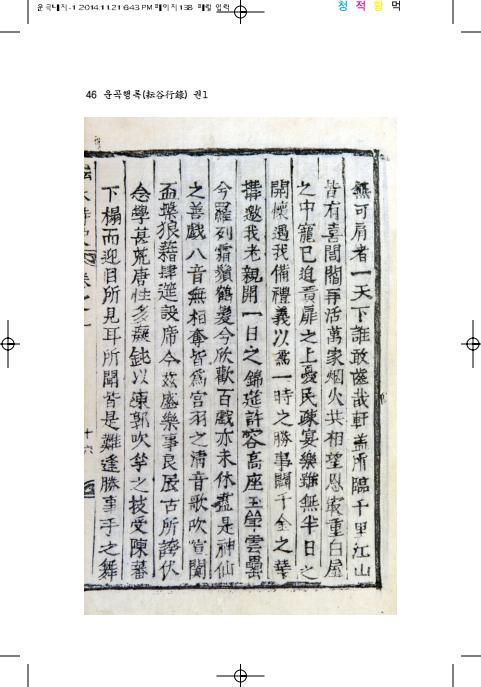 운곡내지-1 2014.11.21 6:43 PM 페이지138 매일 입력
청 적 황 먹
46 운곡행록(耘谷行錄) 권1
無可肩者一天下誰敢齒哉軒盖所臨千里江山
皆有喜閭閻再活萬家烟火共相望恩最重白屋
之中寵已迫黃扉之上憂民疎宴樂雖無半日之
開懷遇我備禮義以爲一時之勝事闢千金之華
搆邀我老親開一日之錦筵許容高座玉斝雲罍
今羅列霜鬚鶴髮今欣歡百戲亦未休盡是神仙
之善戲八音無相奪皆爲宮羽之淸音歌吹喧闐
盃盤狼藉肆筵設席今玆盛樂事良辰古所誇伏
念學甚荒唐性多蔬鈍以東郭吹竽之技受陳蕃
下榻而迎目所見耳所聞皆是難逢勝事手之舞